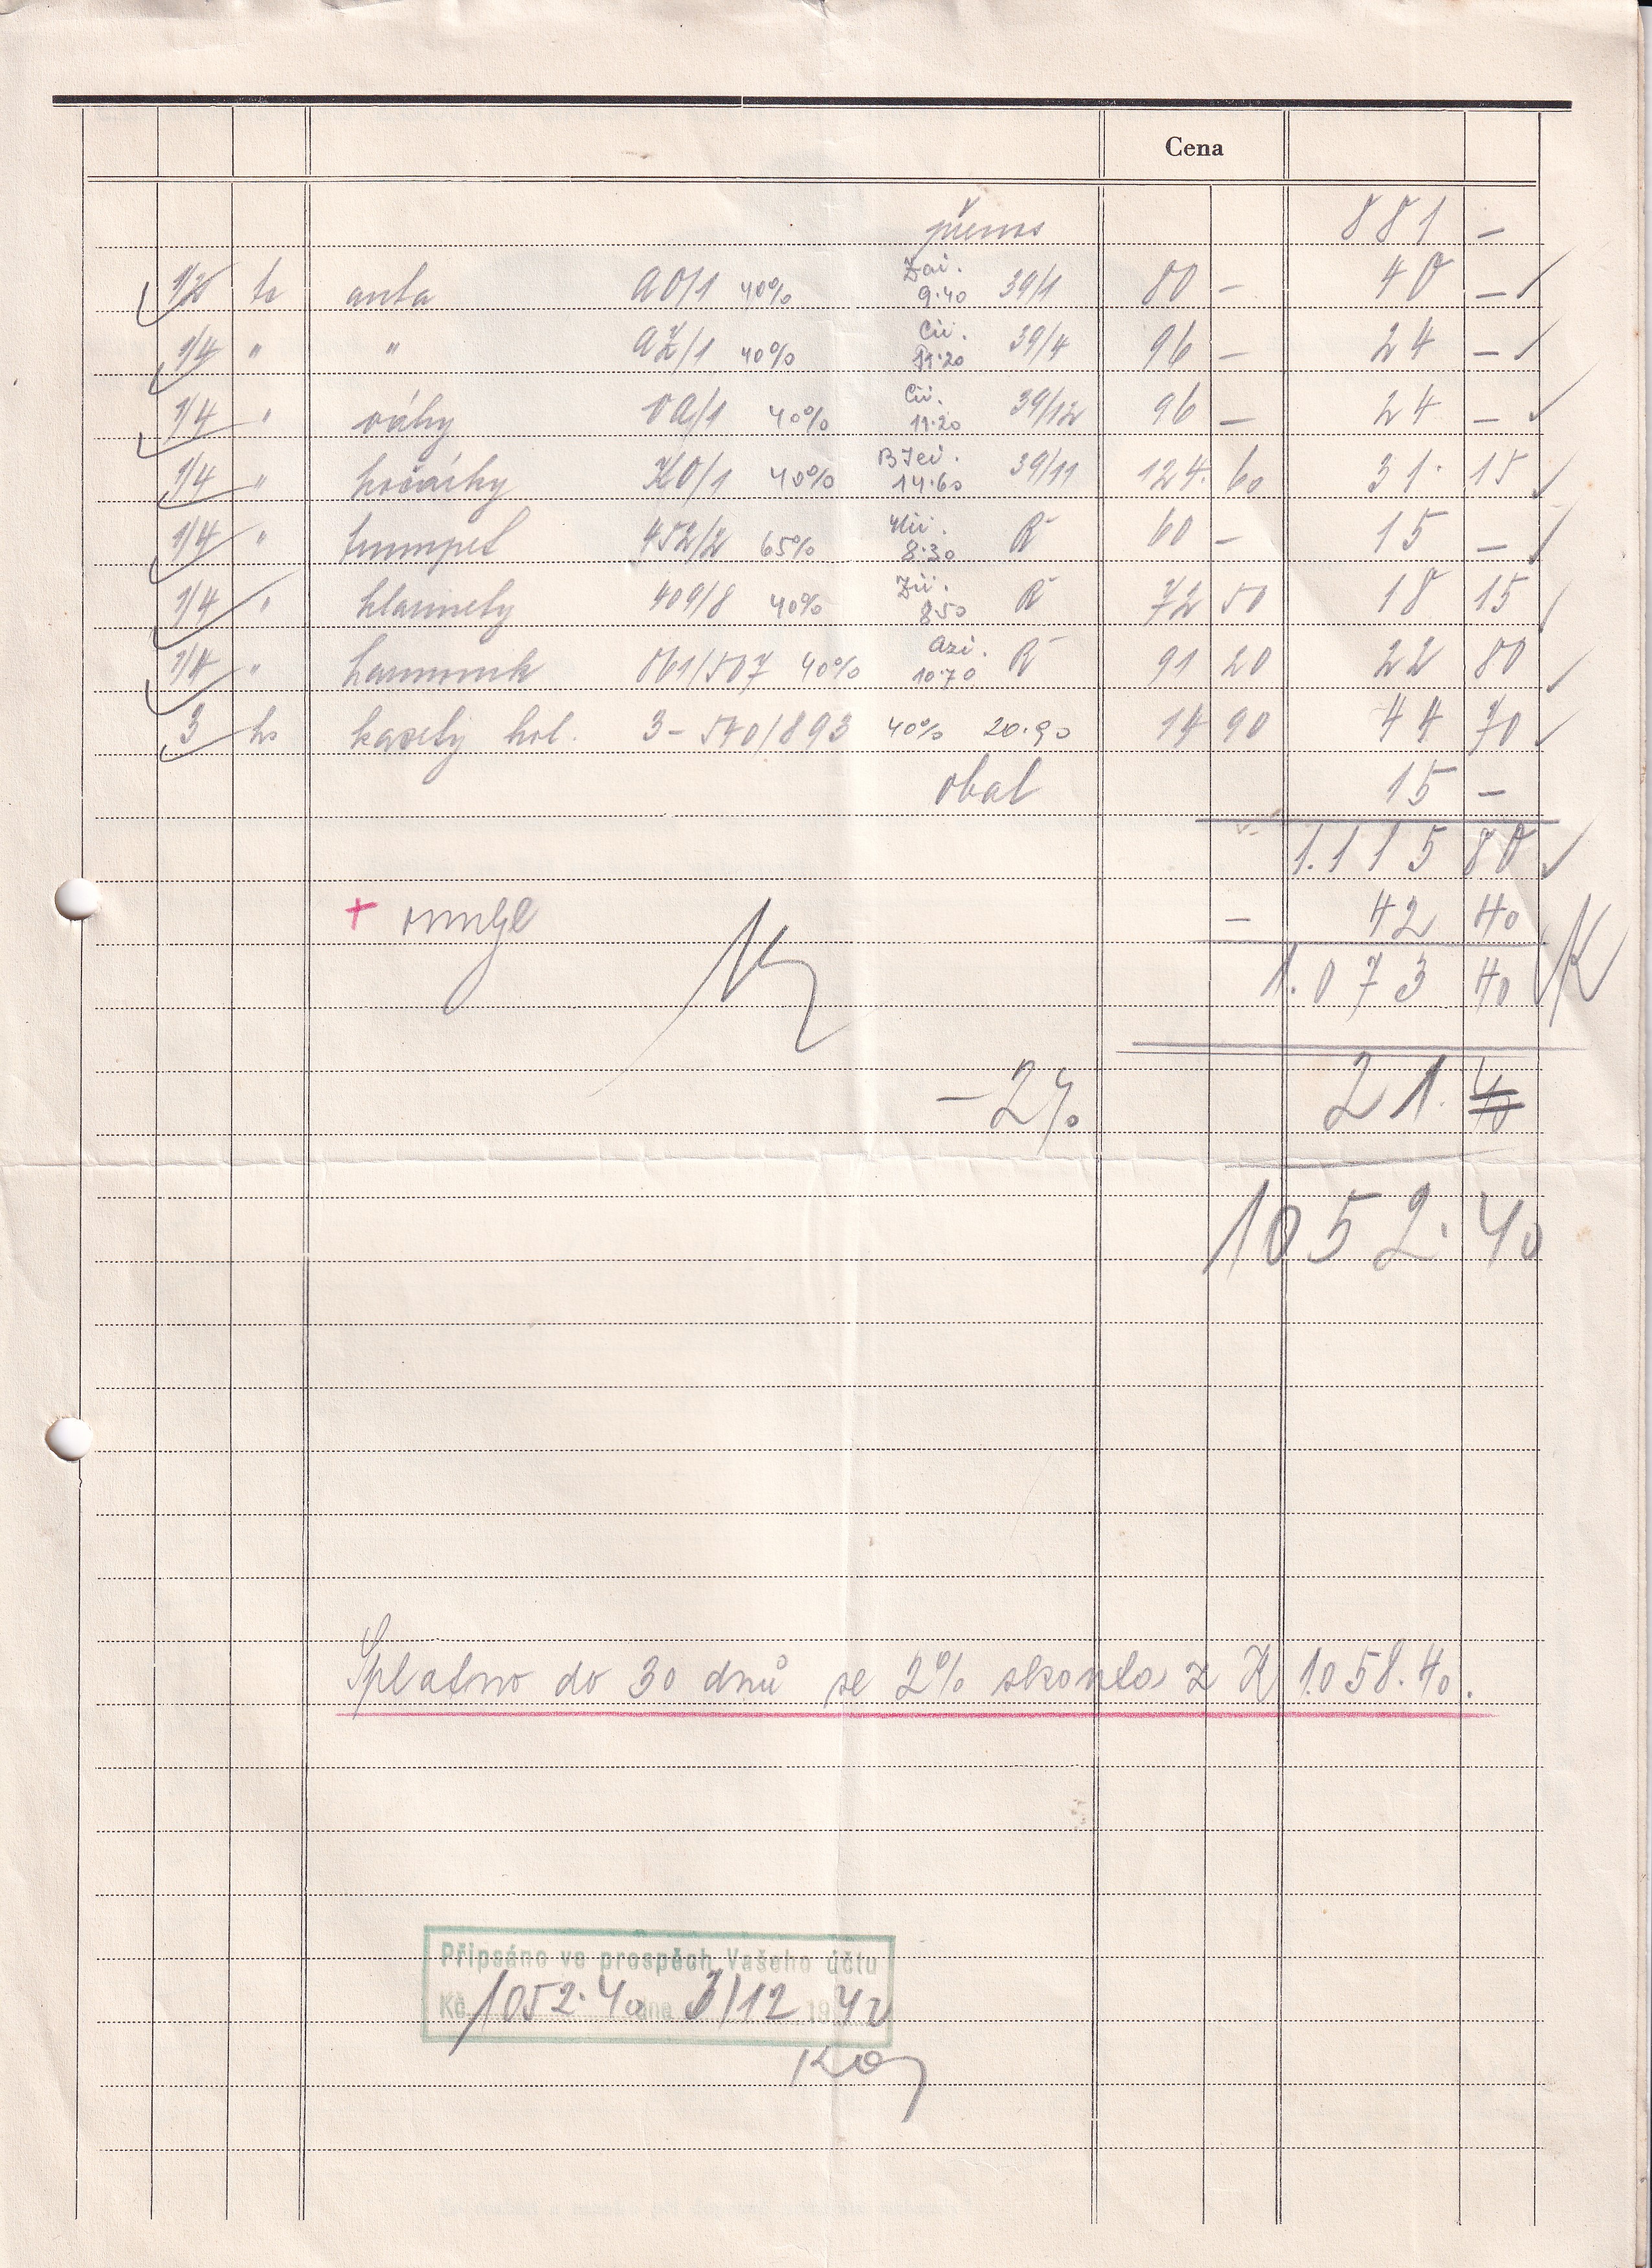 Cena
přenos 881 —
1/2 tc auta AO/1 40% 9.40 39/1 80 — 40 —
1/4 " " AZ/1 40% 11.20 39/4 96 — 24 —
1/4 " váhy VA/1 40% 11.20 39/12 96 — 24 —
1/4 " kočárky KO/1 40% 14.60 39/11 124.60 31.15
1/4 " trumpet 452/2 65% 8.30 R 60 — 15 —
1/4 " klarinety 409/8 40% 8.50 R 72 50 18 15
" harmonik 061/507 40% 10.70 R 91 20 22 80
3 ks kasety hol. 3-540/893 40% 20.90 14 90 44 70
obal 15 —
1.115 80
+ — 42 40
1.073 40
— 2% 21. 40
1052.40
Splatno do 30 dnů se 2% skonto z K 1.058.40.
Připsáno ve prospěch Vašeho účtu
Kč 1052.40 dne 3/12 1942